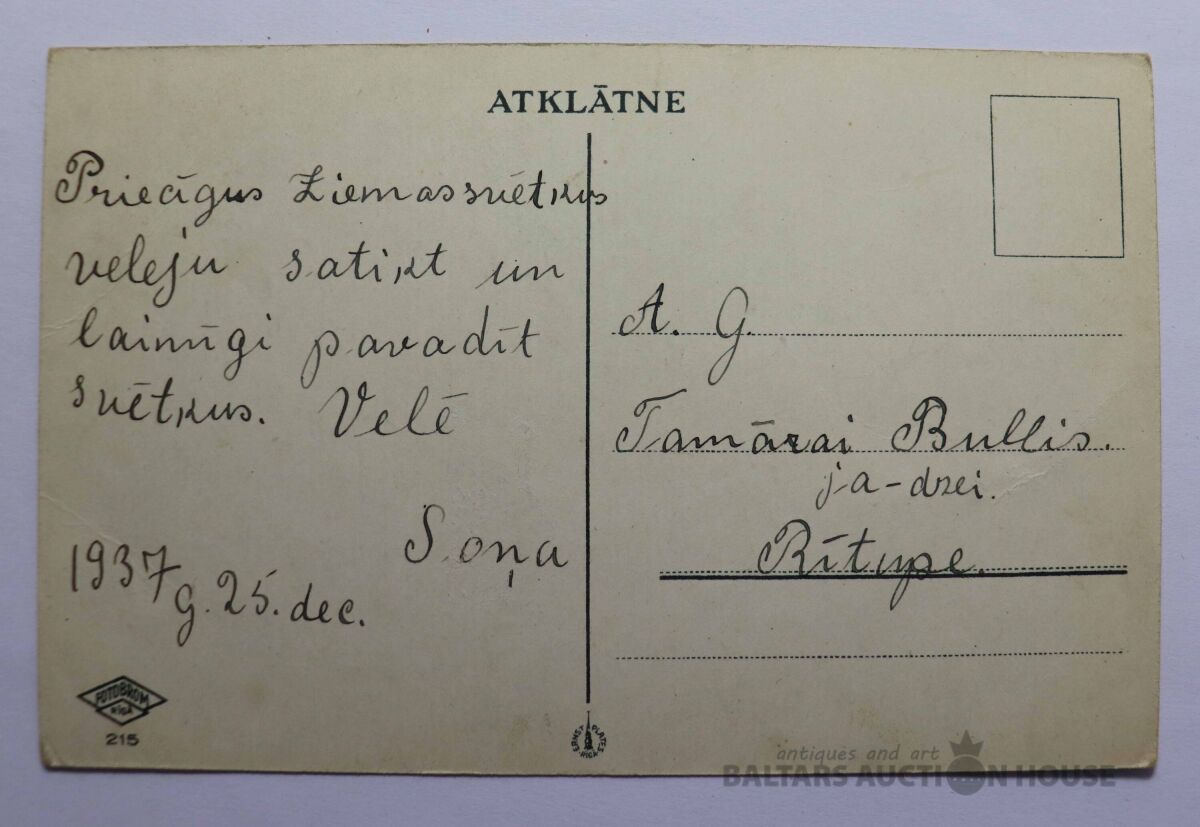 ATKLĀTNE
Priecīgus Ziemassvētkus
veleju satikt un
laimīgi pavadīt
svētkus. Velē
Soņa
1937 g. 25. dec.
FOTOBROM
RIGA
215
A. G.
Tamārai Bullis.
ja-dzei.
Rītupe.
ERNST PLATES RIGA
antiques and art
BALTARS AUCTION HOUSE